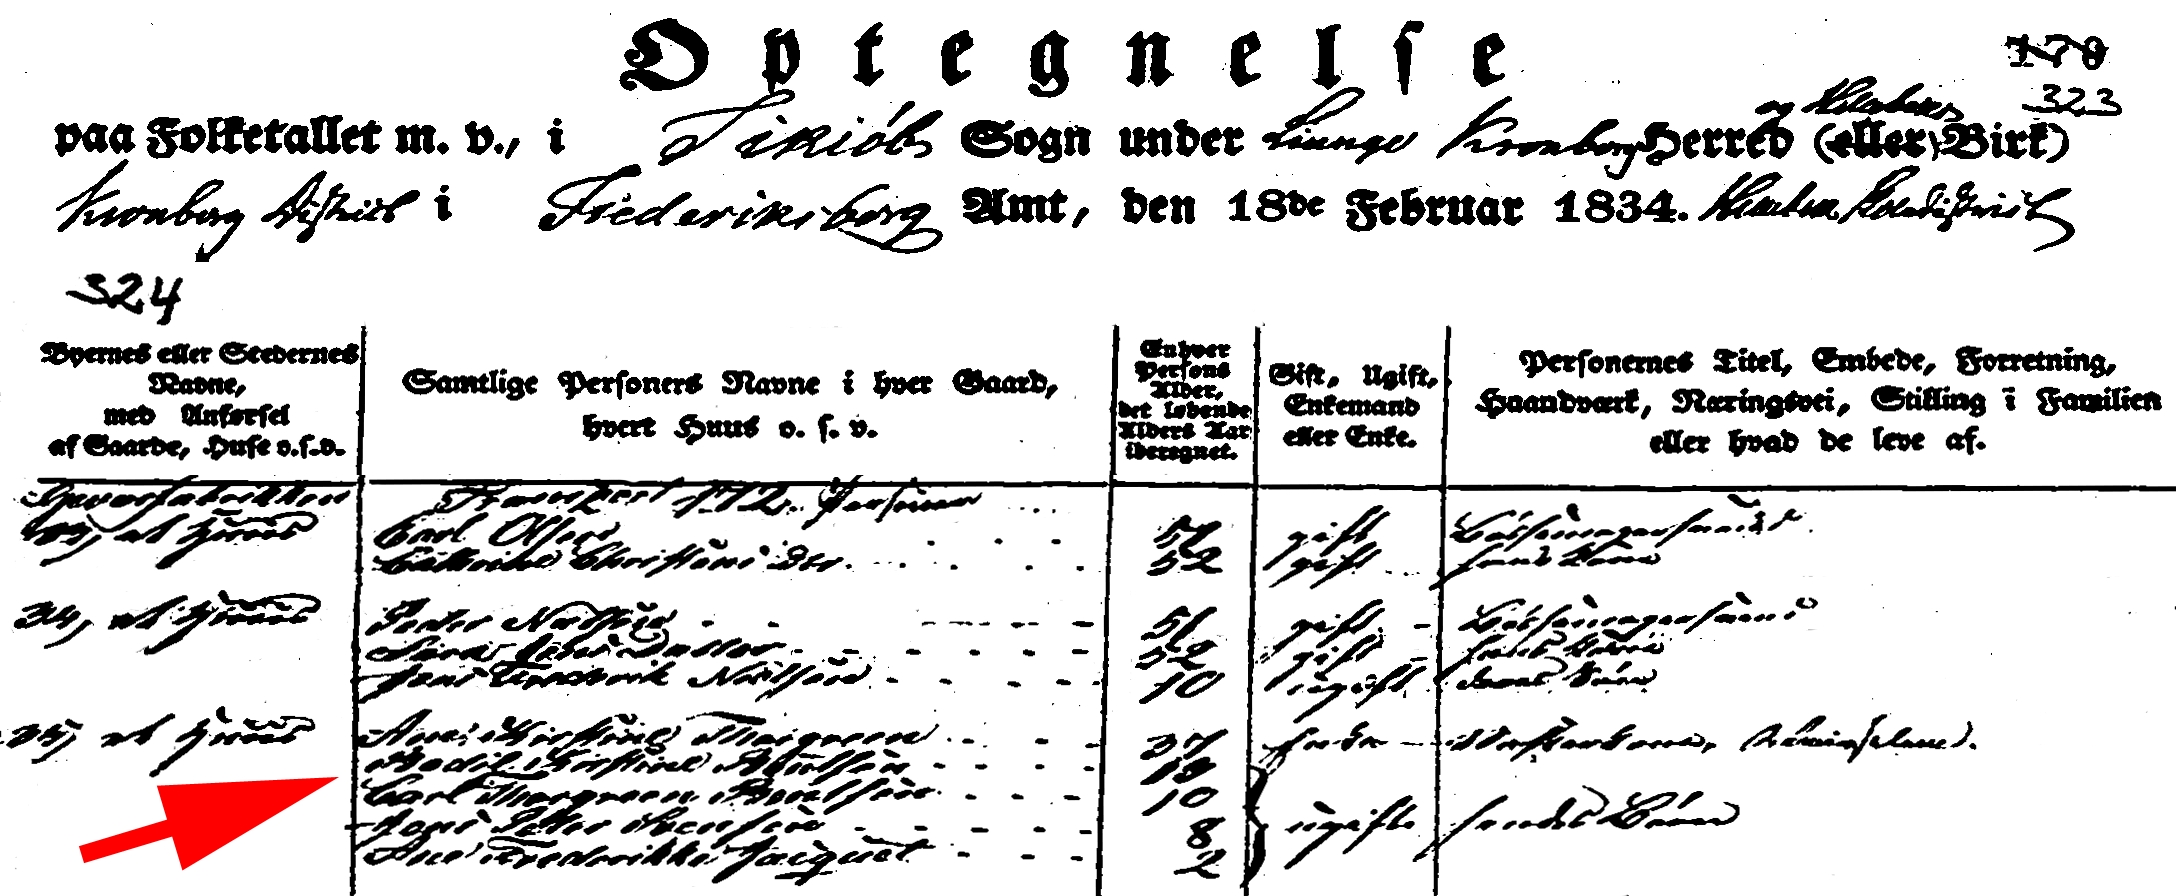 Optegnelse
170
323
og Helsingørs
paa Folketallet m. v., i Tikiøb Sogn under Liunge Kronborg Herred (eller) Birk)
Kronborg District i Frederiksborg Amt, den 18de Februar 1834.
324
Byernes eller Stedernes Navne, med Anførsel af Gaarde, Huse o.s.v.
Samtlige Personers Navne i hver Gaard, hvert Huus o. s. v.
Enhver Persons Alder, det løbende Alders Aar iberegnet.
Gift, Ugift, Enkemand eller Enke.
Personernes Titel, Embede, Forretning, Haandværk, Næringsvei, Stilling i Familien eller hvad de leve af.
Geværfabrikken Transport 172 Personer
33, et Huus Carl Olsen 57 gift Bøssemagersvend
Cathrine Christens Dtr. 52 gift hans Kone
34, et Huus Peder Nielsen 51 gift Bøssemagersvend
Jens Datter 52 gift hans Kone
Jens Frederik Nielsen 10 ugift deres Søn
35, et Huus Ane Kirstine Thorgreen 37 Enke
Bodil Kirstine Poulsen 13
Carl Thorgreen Poulsen 10
Jens Petter Svensen 8 ugifte hendes Børn
Ane Frederikke Jacquet 2